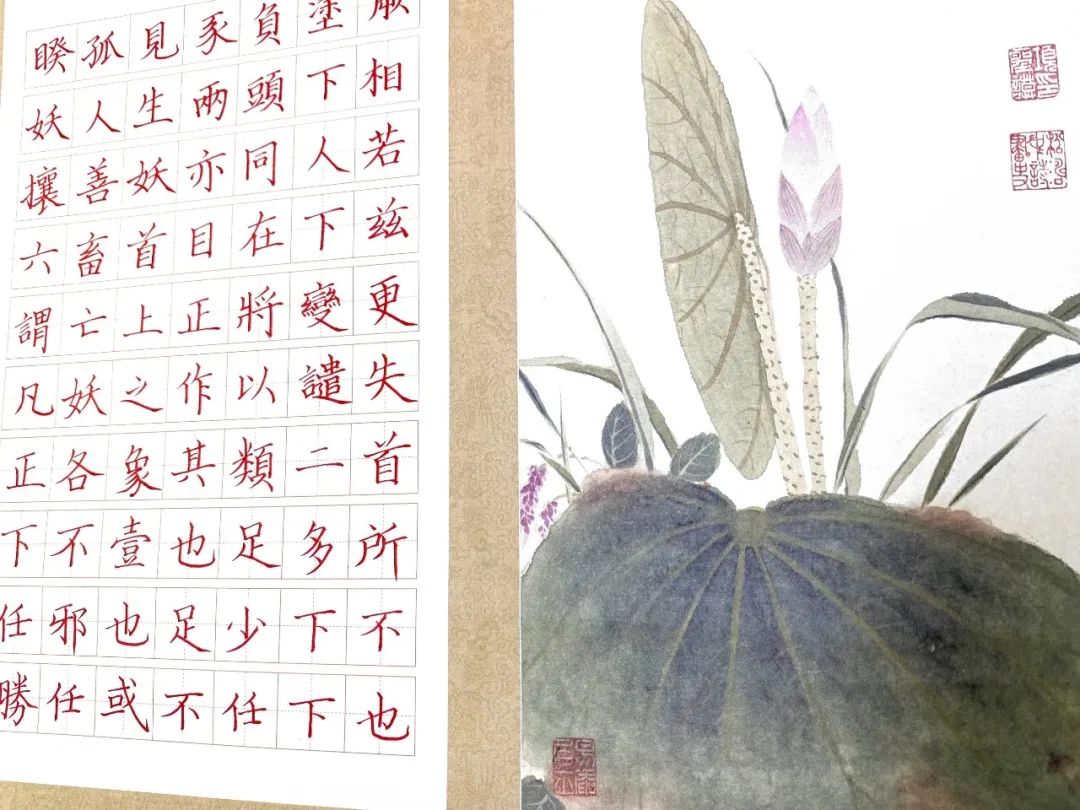 睽孤見豕負塗厥
妖人生兩頭下相
攘善妖亦同人若
六畜首目在下茲
謂亡上正將變更
凡妖之作以譴失
正各象其類二首
下不壹也足多所
任邪也足少下不
勝任或不任下也